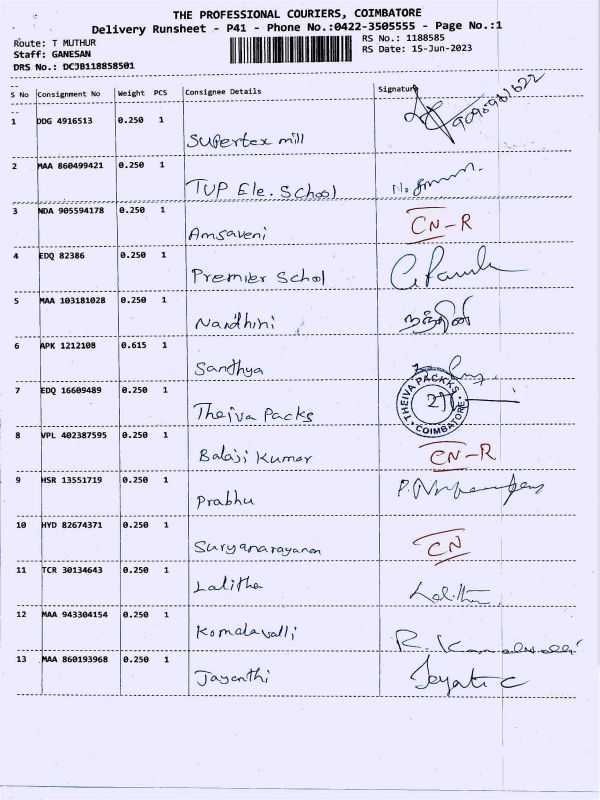 THE PROFESSIONAL COURIERS, COIMBATORE
Delivery Runsheet - P41 - Phone No.:0422-3505555 - Page No.:1
Route: T MUTHUR
RS No.: 1188585
Staff: GANESAN
RS Date: 15-Jun-2023
DRS No.: DCJB118858501
S No Consignment No Weight PCS Consignee Details Signature
1 DDG 4916513 0.250 1 Supertex mill
2 MAA 860499421 0.250 1 TUP Ele. School
3 NDA 905594178 0.250 1 Amsaveni CN-R
4 EDQ 82386 0.250 1 Premier Schol
5 MAA 103181028 0.250 1 Nandhini நந்தினி
6 APK 1212108 0.615 1 Sandhya
7 EDQ 16609489 0.250 1 Theiva Packs THEIVA PACKKS COIMBATORE
8 VPL 402387595 0.250 1 Balaji Kumar CN-R
9 HSR 13551719 0.250 1 Prabhu
10 HYD 82674371 0.250 1 Suryanarayanan CN
11 TCR 30134643 0.250 1 Lalitha Lalitha
12 MAA 943304154 0.250 1 Komalavalli R. Komalavalli
13 MAA 860193968 0.250 1 Jayanthi